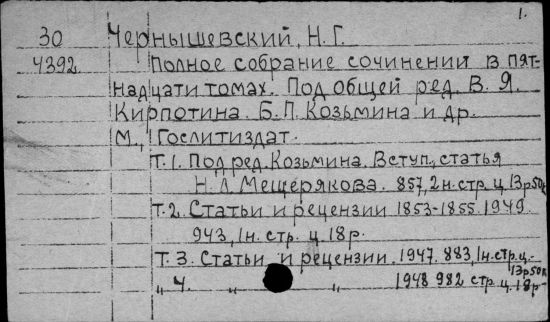 1.
30 Чернышевский, Н.Г.
4392 Полное собрание сочинений в пят-
надцати томах. Под общей ред. В. Я.
Кирпотина. Б.П. Козьмина и др.
М., Гослитиздат.
Т. 1. Под ред. Козьмина. Вступ. статья
Н.Л. Мещерякова. 857, 2н. стр. ц. 13р50к
Т. 2. Статьи и рецензии 1853-1855. 1949.
943, 1н. стр. ц. 18р.
Т. 3. Статьи и рецензии. 1947. 883, 1н. стр. ц.
13р50к
„ 4. „ „ 1948 982 стр. ц. 18р-